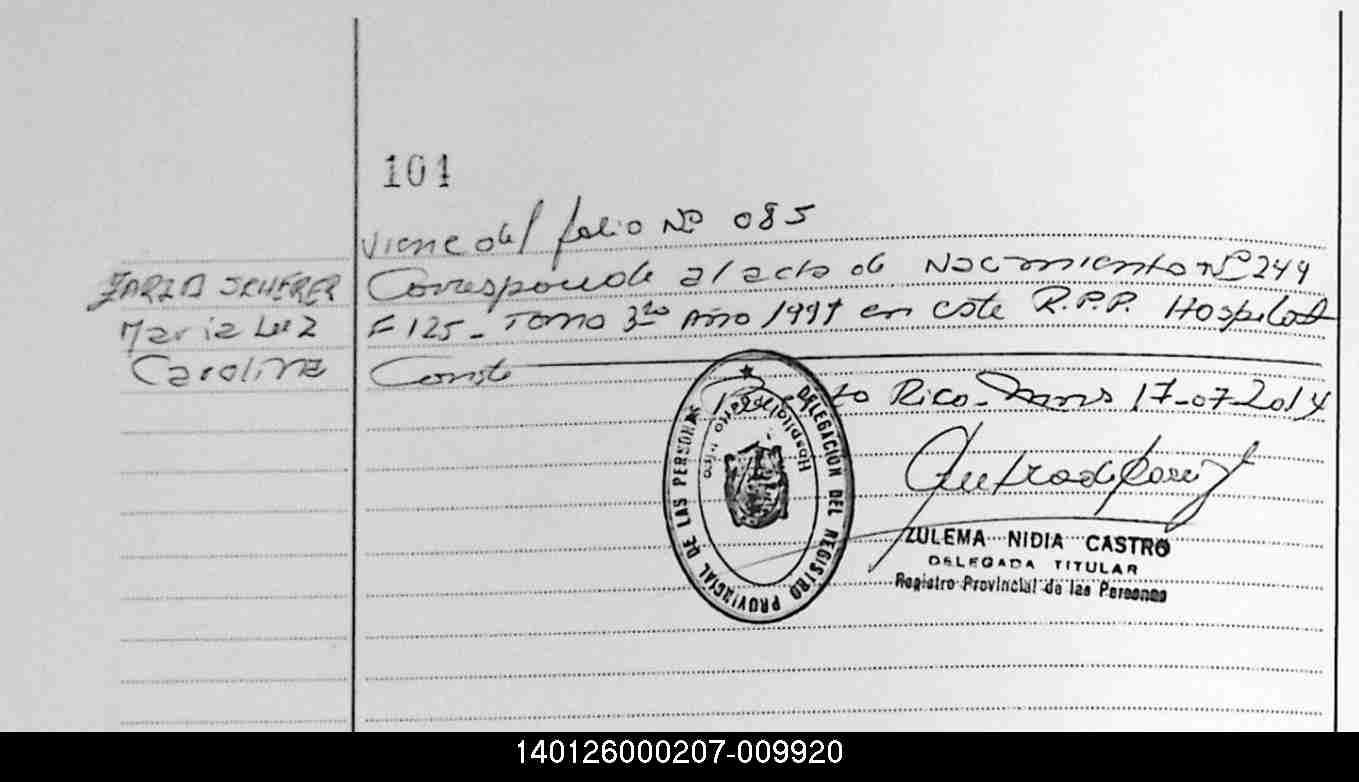 101
Viene del folio Nº 085
ZARZA SCHERER
Maria Luz
Carolina
Corresponde al acta de Nacimiento Nº 249
F 125 - Tomo 3ro Año 1997 en este R.P.P. Hospital
Conste
Pto Rico - Mnes 17-07-2014
DELEGACION DEL REGISTRO PROVINCIAL DE LAS PERSONAS
Hospital Pto Rico
ZULEMA NIDIA CASTRO
DELEGADA TITULAR
Registro Provincial de las Personas
140126000207-009920